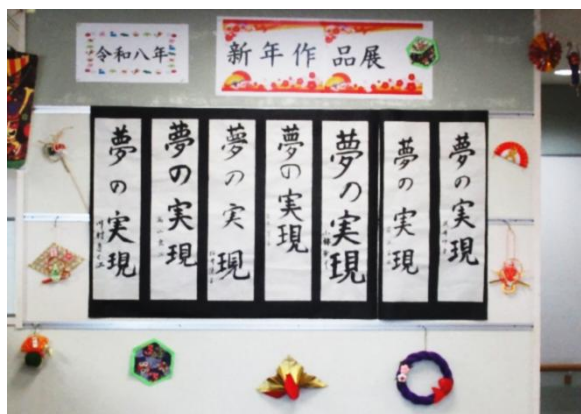 令和八年
新年作品展
夢の実現
夢の実現
夢の実現
夢の実現
夢の実現
夢の実現
夢の実現